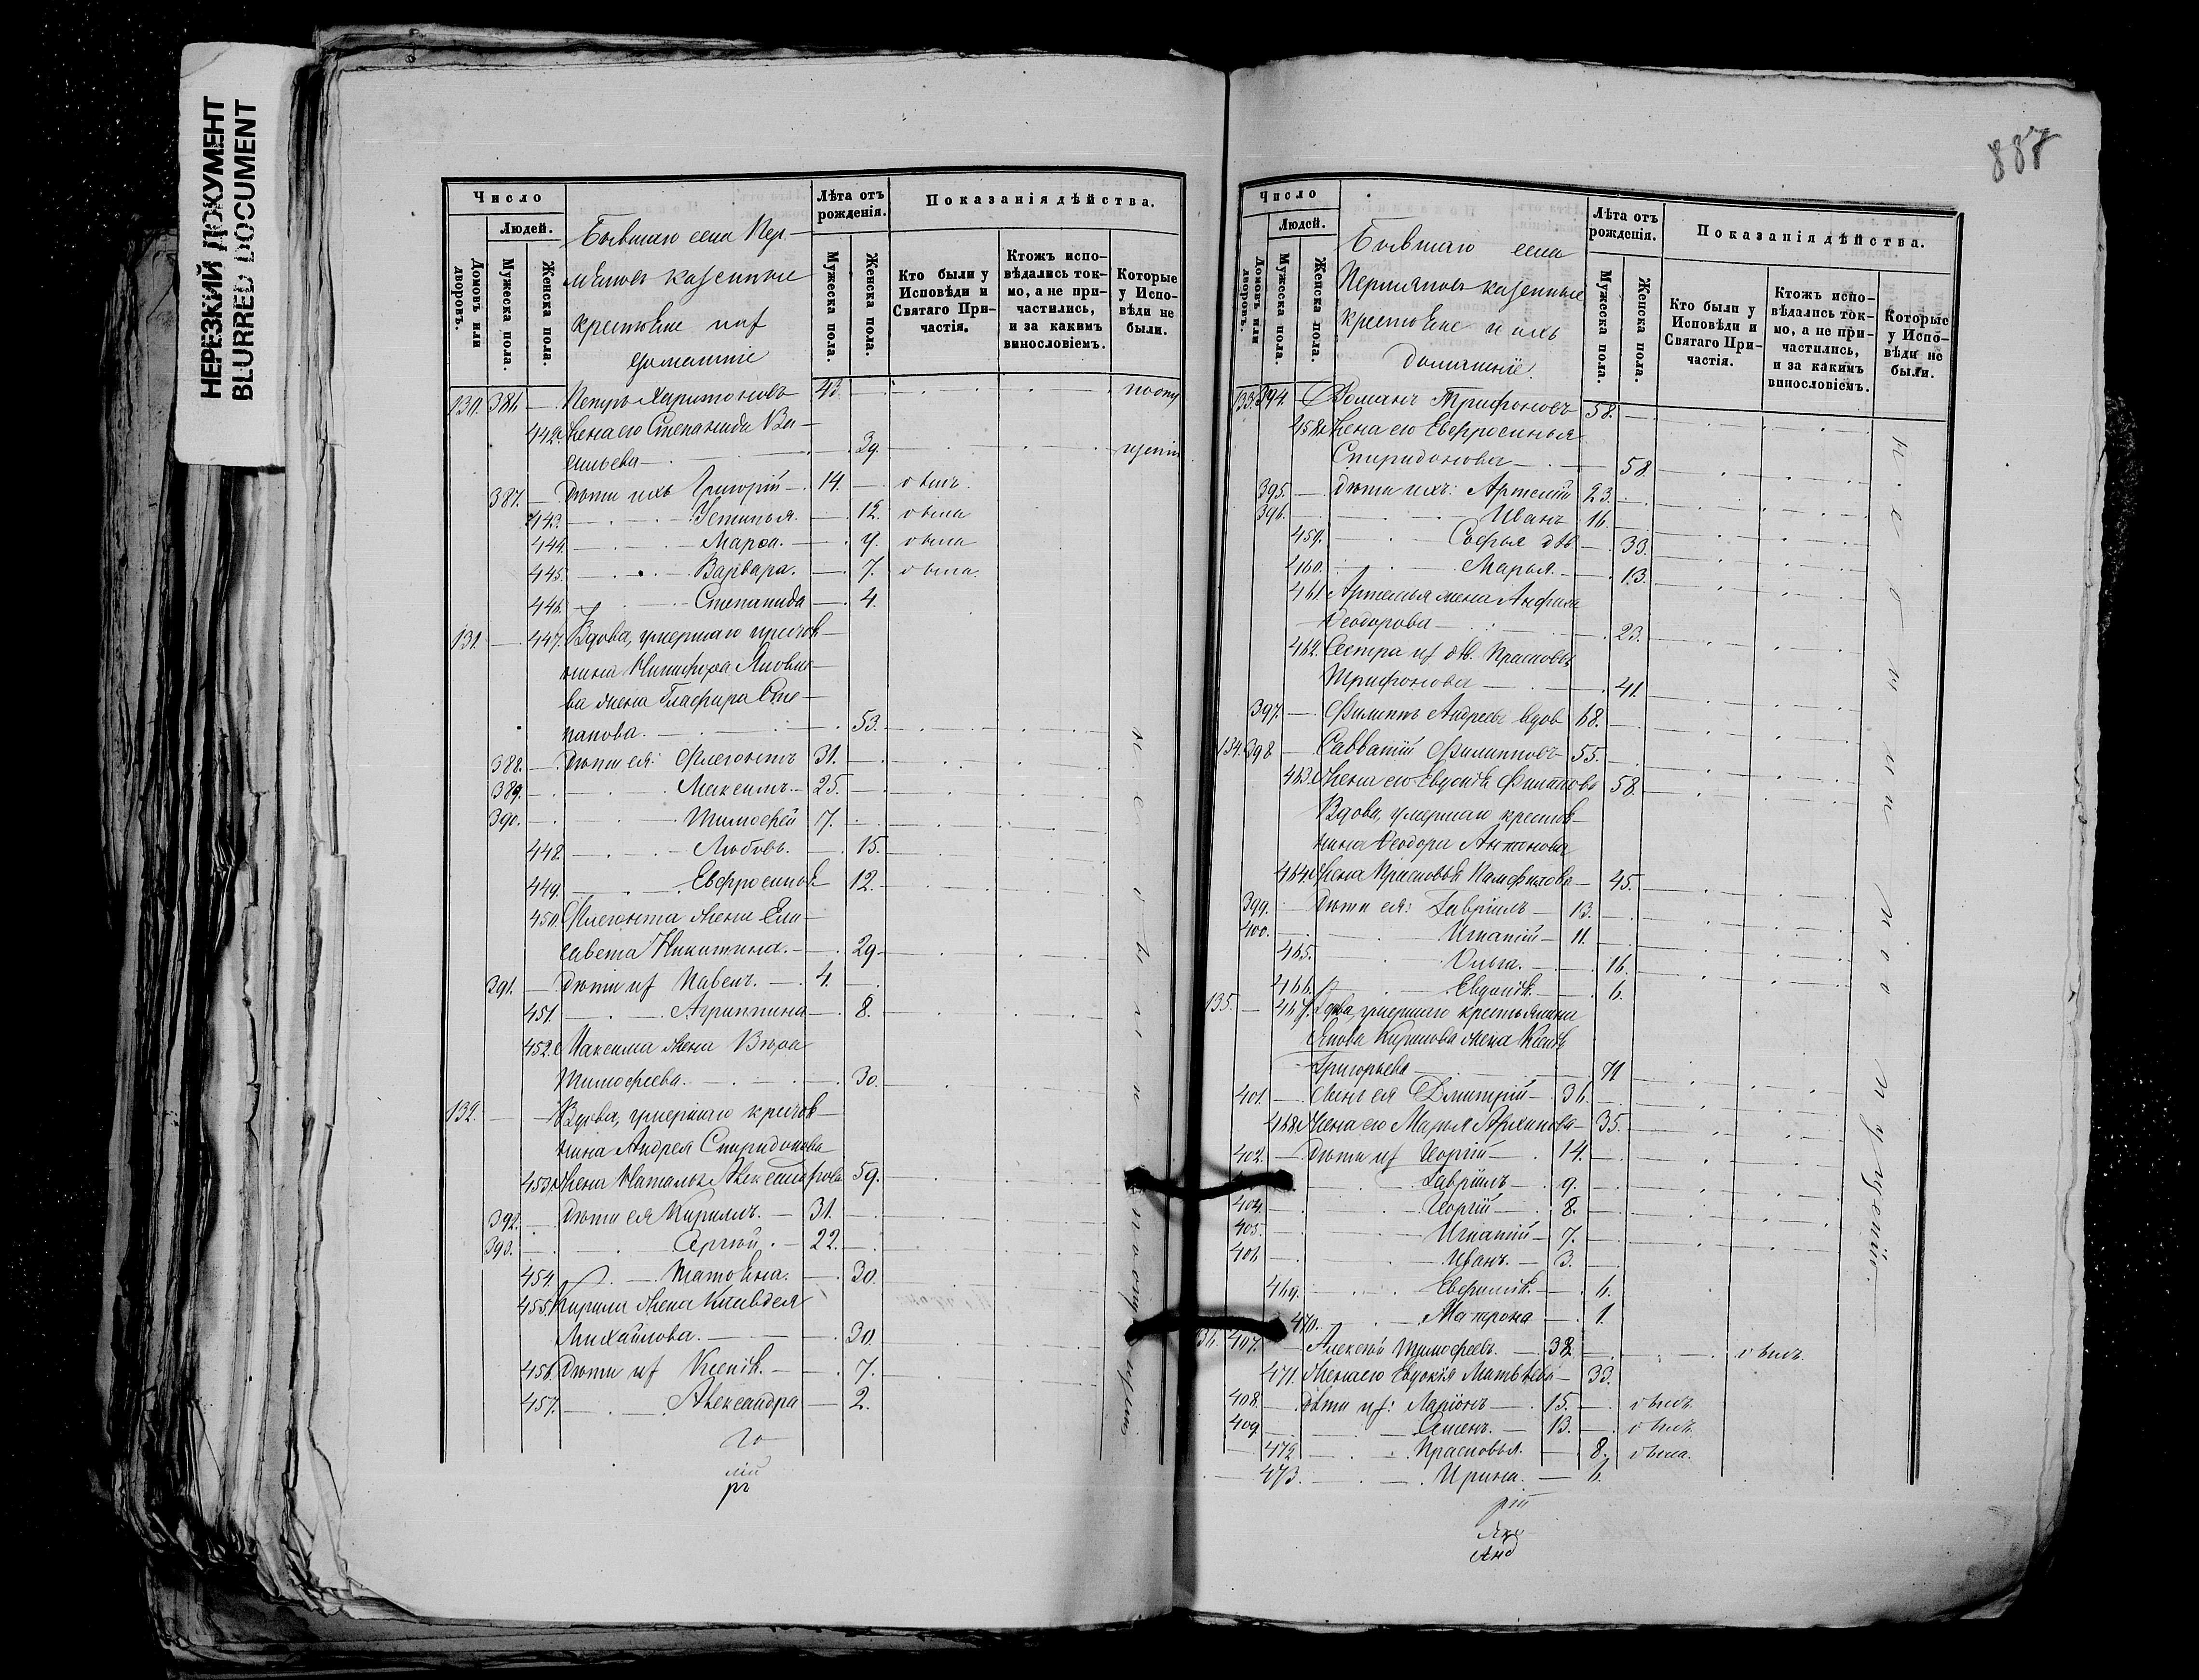 НЕРЕЗКИЙ ДОКУМЕНТ
BLURRED DOCUMENT
Число
Людей.
Домовъ или дворовъ.
Мужеска пола.
Женска пола.
Бывшаго села Пер-
мяковъ казенные
крестьяне
домашніе
Лѣта отъ рожденія.
Мужеска пола.
Женска пола.
Показанія дѣйства.
Кто были у Исповѣди и Святаго Причастія.
Ктожъ исповѣдались токмо, а не причастились, и за какимъ винословіемъ.
Которые у Исповѣди не были.
130. 386. — Петръ Харитоновъ 43.
442. Жена его Степанида Ва-
сильева — 39.
387. — Дѣти ихъ Григорій — 14. — былъ
443. Устинья. — 12. была
444. Марѳа. — 9. была
445. Варвара. — 7. была
446. Степанида — 4.
131. — 447. Вдова, умершаго
Никифора
жена Глафира Сте-
панова. — 53.
388. — Дѣти ея: Флегонтъ 31.
389. — Максимъ. — 25.
390. — Тимофей 7.
448. Любовь. 15.
449. Евфросинія 12.
450. Флегонта жена Ели-
савета Никитина. — 29
391. — Дѣти их Павелъ. — 4.
451. Агриппина — 8.
452. Максима жена Вѣра
Тимофеева. — 30.
132. — Вдова, умершаго
Андрея Спиридонова
453. Жена Наталья 59.
392. — Дѣти ея Кириллъ. — 31.
393. — Сергѣй. — 22.
454. Татьяна. — 30.
455. Кирила жена Клавдея
Михайлова. — 30.
456. Дѣти их Ксенія. — 7.
457. Александра — 2.
не были по опущенію
887
Число
Людей.
Домовъ или дворовъ.
Мужеска пола.
Женска пола.
Бывшаго села
Пермяковъ казенные
крестьяне и ихъ
домашніе.
Лѣта отъ рожденія.
Мужеска пола.
Женска пола.
Показанія дѣйства.
Кто были у Исповѣди и Святаго Причастія.
Ктожъ исповѣдались токмо, а не причастились, и за какимъ винословіемъ.
Которые у Исповѣди не были.
133. 394. — Романъ Трифоновъ 58.
458. Жена его Евфросинья
Спиридонова — 58.
395. — Дѣти ихъ: Артемій 23.
396. Иванъ 16.
459. Софья дѣв. — 33.
460. Марья. — 13.
461. Артемья жена Анфиса
Ѳеодорова — 23.
462. Сестра их дѣв. Прасковья
Трифонова — 41.
397. — Филиппъ Андреевъ вдов 68.
134. 398 — Савватій Филипповъ — 55.
463. Жена его Евдокія 58.
Вдова, умершаго крестья-
нина Ѳеодора Антонова
464. Жена Прасковья Памфилова — 45.
399. — Дѣти ея: Гавріилъ — 13.
400. Игнатій — 11.
465. Ольга. — 16.
466. Евдокія. — 6.
135. — 467. Вдова, умершаго крестьянина
Якова Кирилова жена Ксенія
Григорьева — 71
401. — Сынъ ея Дмитрій — 36.
468. Жена его Марья Архипова — 35.
402. — Дѣти их Георгій — 14.
Гавріилъ — 9.
404. — Георгій — 8.
405. — Игнатій — 7.
406 — Иванъ. — 3.
469. Евфимія. — 6.
470. Матрона — 1.
136. 407. — Алексѣй Тимофеевъ. — 38. былъ
471. Жена его Евдокія Матвѣева — 33.
408. — Дѣти их: Ларіонъ — 15. — былъ
409. Семенъ. — 13. — былъ.
472 Прасковья. — 8. была.
473. Ирина. — 6.
не были по опущенію.